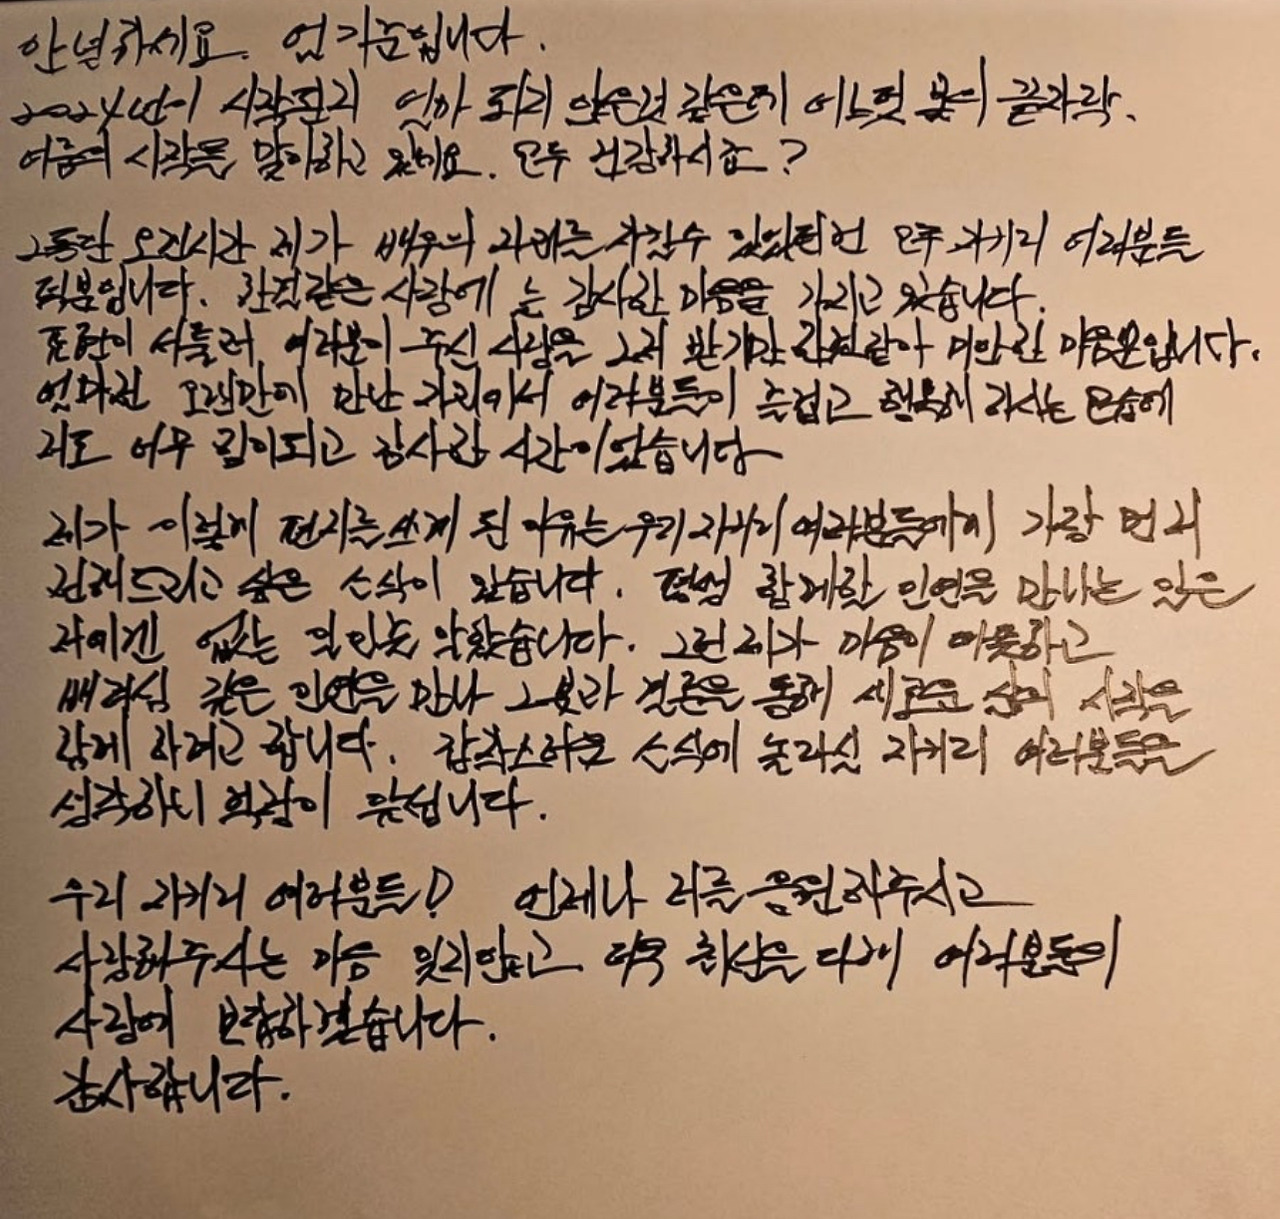 안녕하세요. 엄기준입니다.
2024년이 시작된지 얼마 되지 않은것 같은데 어느덧 봄의 끝자락.
여름의 시작을 맞이하고 있네요. 모두 건강하시죠?
그동안 오랜시간 제가 배우의 자리를 지킬수 있었던건 모두 자기리 여러분들
덕분입니다. 한결같은 사랑에 늘 감사한 마음을 가지고 있습니다.
표현이 서툴러 여러분이 주신 사랑을 그저 받기만 한것같아 미안한 마음뿐입니다.
얼마전 오랜만에 만난 자리에서 여러분들이 즐겁고 행복해 하시는 모습에
저도 너무 힘이되고 감사한 시간이었습니다
제가 이렇게 편지를 쓰게 된 이유는 우리 자기리 여러분들에게 가장 먼저
전해드리고 싶은 소식이 있습니다. 평생 함께할 인연을 만나는 일은
저에겐 없는 일인듯 살았습니다. 그런 제가 마음이 따뜻하고
배려심 깊은 인연을 만나 그분과 결혼을 통해 새로운 삶의 시작을
함께 하려고 합니다. 갑작스러운 소식에 놀라실 자기리 여러분들을
생각하니 걱정이 앞섭니다.
우리 자기리 여러분들! 언제나 저를 응원해주시고
사랑해주시는 마음 잊지않고 더욱 최선을 다해 여러분들의
사랑에 보답하겠습니다.
감사합니다.